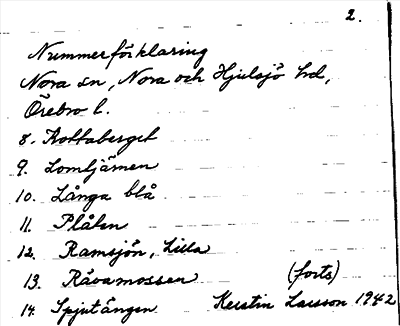 2.
Nummerförklaring
Nora sn, Nora och Hjulsjö hd,
Örebro l.
8. Kottaberget
9. Lomtjärnen
10. Långa blå
11. Plåten
12. Ramsjön, Lilla
13. Råvamossen (forts)
14. Spjutängen Kerstin Larsson 1942